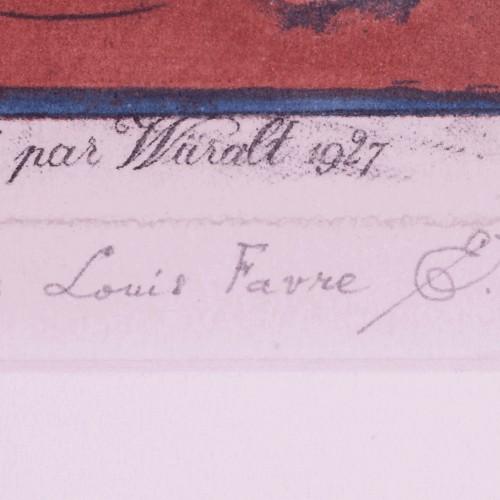 par Würalt 1927
Louis Favre E.